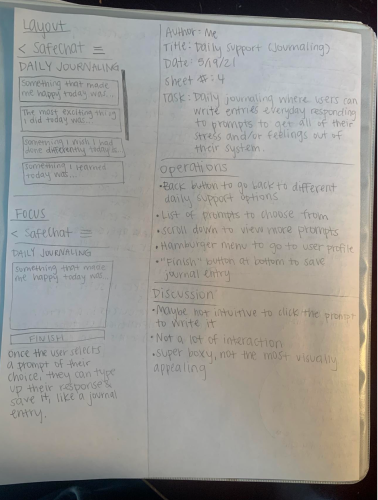 Layout
< SafeChat ☰
DAILY JOURNALING
Something that made
me happy today was...
The most exciting thing
I did today was...
Something I wish I had
done differently today is...
Something I learned
today was...
FOCUS
< SafeChat ☰
DAILY JOURNALING
Something that made
me happy today was...
FINISH
Once the user selects
a prompt of their
choice, they can type
up their response &
save it, like a journal
entry.
Author: Me
Title: Daily Support (Journaling)
Date: 5/19/21
Sheet #: 4
Task: Daily journaling where users can
write entries everyday responding
to prompts to get all of their
stress and/or feelings out of
their system.
Operations
• Back button to go back to different
daily support options
• List of prompts to choose from
• Scroll down to view more prompts
• Hamburger menu to go to user profile
• "Finish" button at bottom to save
journal entry
Discussion
• Maybe not intuitive to click the prompt
to write it
• Not a lot of interaction
• Super boxy, not the most visually
appealing